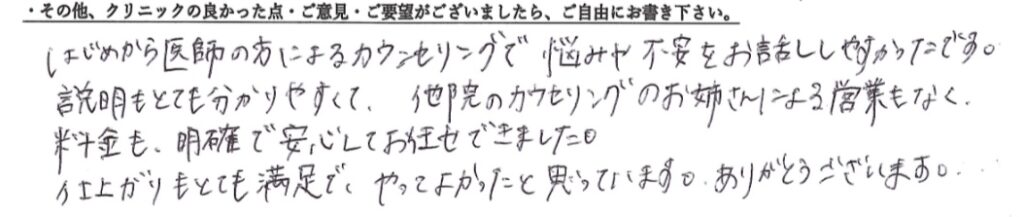 ・その他、クリニックの良かった点・ご意見・ご要望がございましたら、ご自由にお書き下さい。
はじめから医師の方によるカウンセリングで悩みや不安をお話ししやすかったです。
説明もとても分かりやすくて、他院のカウセリングのお姉さんによる営業もなく、
料金も、明確で安心してお任せできました。
仕上がりもとても満足で、やってよかったと思っています。ありがとうございます。